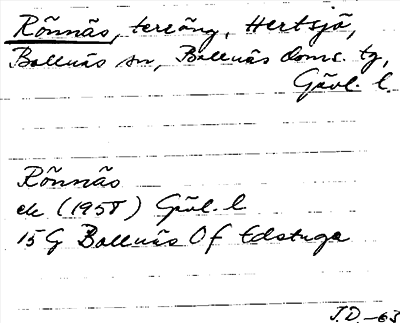 Rönnäs, terräng, Hertsjö,
Bollnäs sn, Bollnäs doms. tg,
Gävl. l.
Rönnäs
ek (1958) Gävl. l
15 G Bollnäs Of Edstuga
J.D. -63